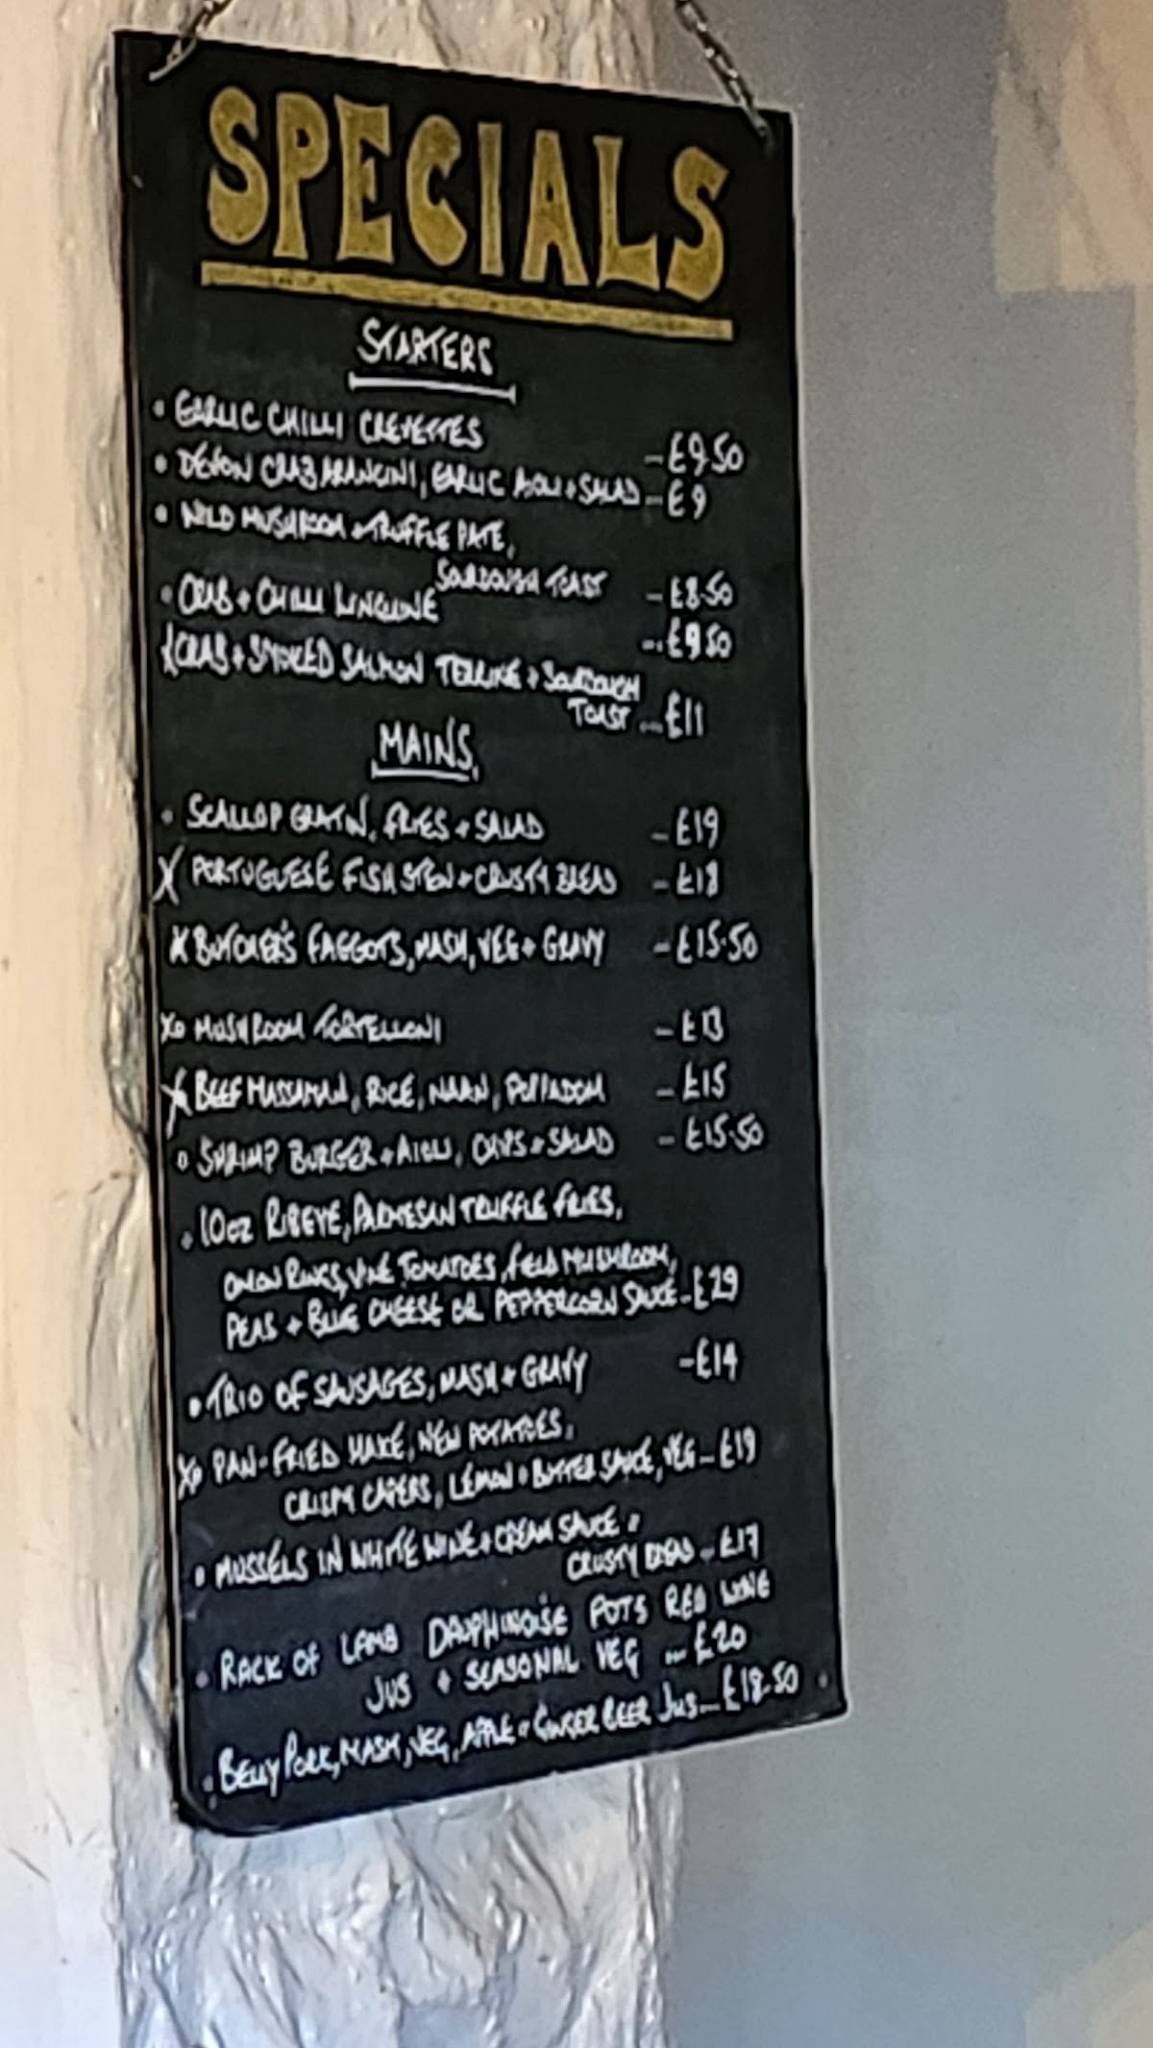 SPECIALS
STARTERS
• GARLIC CHILLI CREVETTES - £9.50
• DEVON CRAB ARANCINI, GARLIC AIOLI + SALAD - £9
• WILD MUSHROOM + TRUFFLE PATE,
SOURDOUGH TOAST - £8.50
• CRAB + CHILLI LINGUINE - £9.50
X CRAB + SMOKED SALMON TERRINE + SOURDOUGH
TOAST - £11
MAINS
• SCALLOP GRATIN, FRIES + SALAD - £19
X PORTUGUESE FISH STEW + CRUSTY BREAD - £18
X BUTCHER'S FAGGOTS, MASH, VEG + GRAVY - £15.50
X• MUSHROOM TORTELLONI - £13
X BEEF MASSAMAN, RICE, NAAN, POPPADOM - £15
• SHRIMP BURGER + AIOLI, CHIPS + SALAD - £15.50
• 10oz RIBEYE, PARMESAN TRUFFLE FRIES,
ONION RINGS, VINE TOMATOES, FIELD MUSHROOM,
PEAS + BLUE CHEESE OR PEPPERCORN SAUCE - £29
• TRIO OF SAUSAGES, MASH + GRAVY - £14
X• PAN-FRIED HAKE, NEW POTATOES,
CRISPY CAPERS, LEMON + BUTTER SAUCE, VEG - £19
• MUSSELS IN WHITE WINE + CREAM SAUCE +
CRUSTY BREAD - £17
• RACK OF LAMB DAUPHINOISE POTS RED WINE
JUS + SEASONAL VEG - £20
• BELLY PORK, MASH, VEG, APPLE + GINGER BEER JUS - £18.50